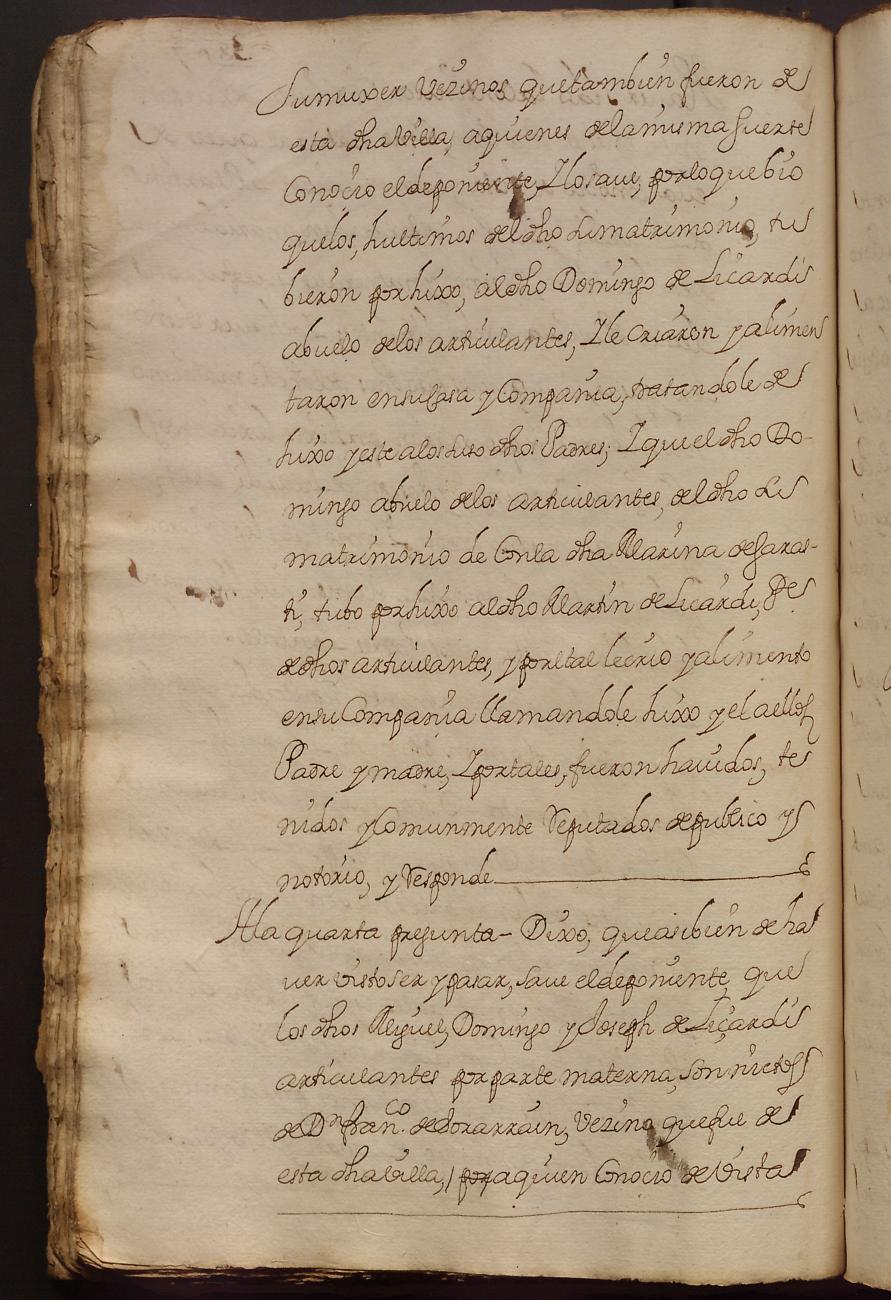 Su muxer Vezinos que tambien fueron de
esta dha Villa, a quienes de la misma Suerte
Conocio el deponiente, I lo save, por lo que bio
que los, hultimos del dho su matrimonio, tu
bieron por hixo, al dho Domingo de Licardi
abuelo de los articulantes, I le criaron y alimen
taron en su Casa y Compañia, tratandole de
hixo y este a los suso dhos Padres; I que el dho Do-
mingo abuelo de los articulantes, del dho su
matrimonio de Con la dha Marina de Garas-
ti, tubo por hixo al dho Martin de Licardi, Pe
de dhos articulantes, y por tal le crio y alimento
en su Compañia llamandole hixo y el a ellos
Padre y madre, I por tales, fueron havidos, te
nidos y Comunmente Reputados de publico y
notorio, y Responde
A la quarta pregunta - Dixo, que asi bien de ha
ver visto ser y pasar, save el deponiente, que
los dhos Miguel, Domingo y Joseph de Liçardi
articulantes por parte materna, son nietos
de Dn franco. de Sorarrain, Vezino que fue de
esta dha Villa, a quien Conocio de Vista